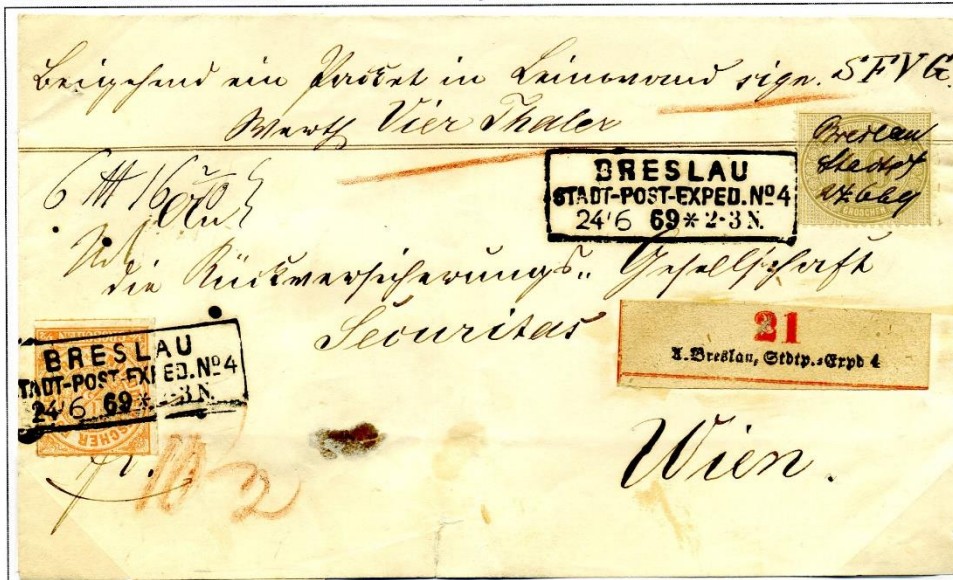 Beigehend ein Packet in Leinwand sign. SFVG.
Werth Vier Thaler
Breslau
24.6.69
GROSCHEN
BRESLAU
STADT-POST-EXPED. No 4
24 6 69 * 2-3 N.
6 16
die Rückversicherungs- Gesellschaft
Securitas
21
A. Breslau, Stdtp.-Expd 4
BRESLAU
STADT-POST-EXPED. No 4
24 6 69 * 2-3 N.
Wien.
fr.
10 2